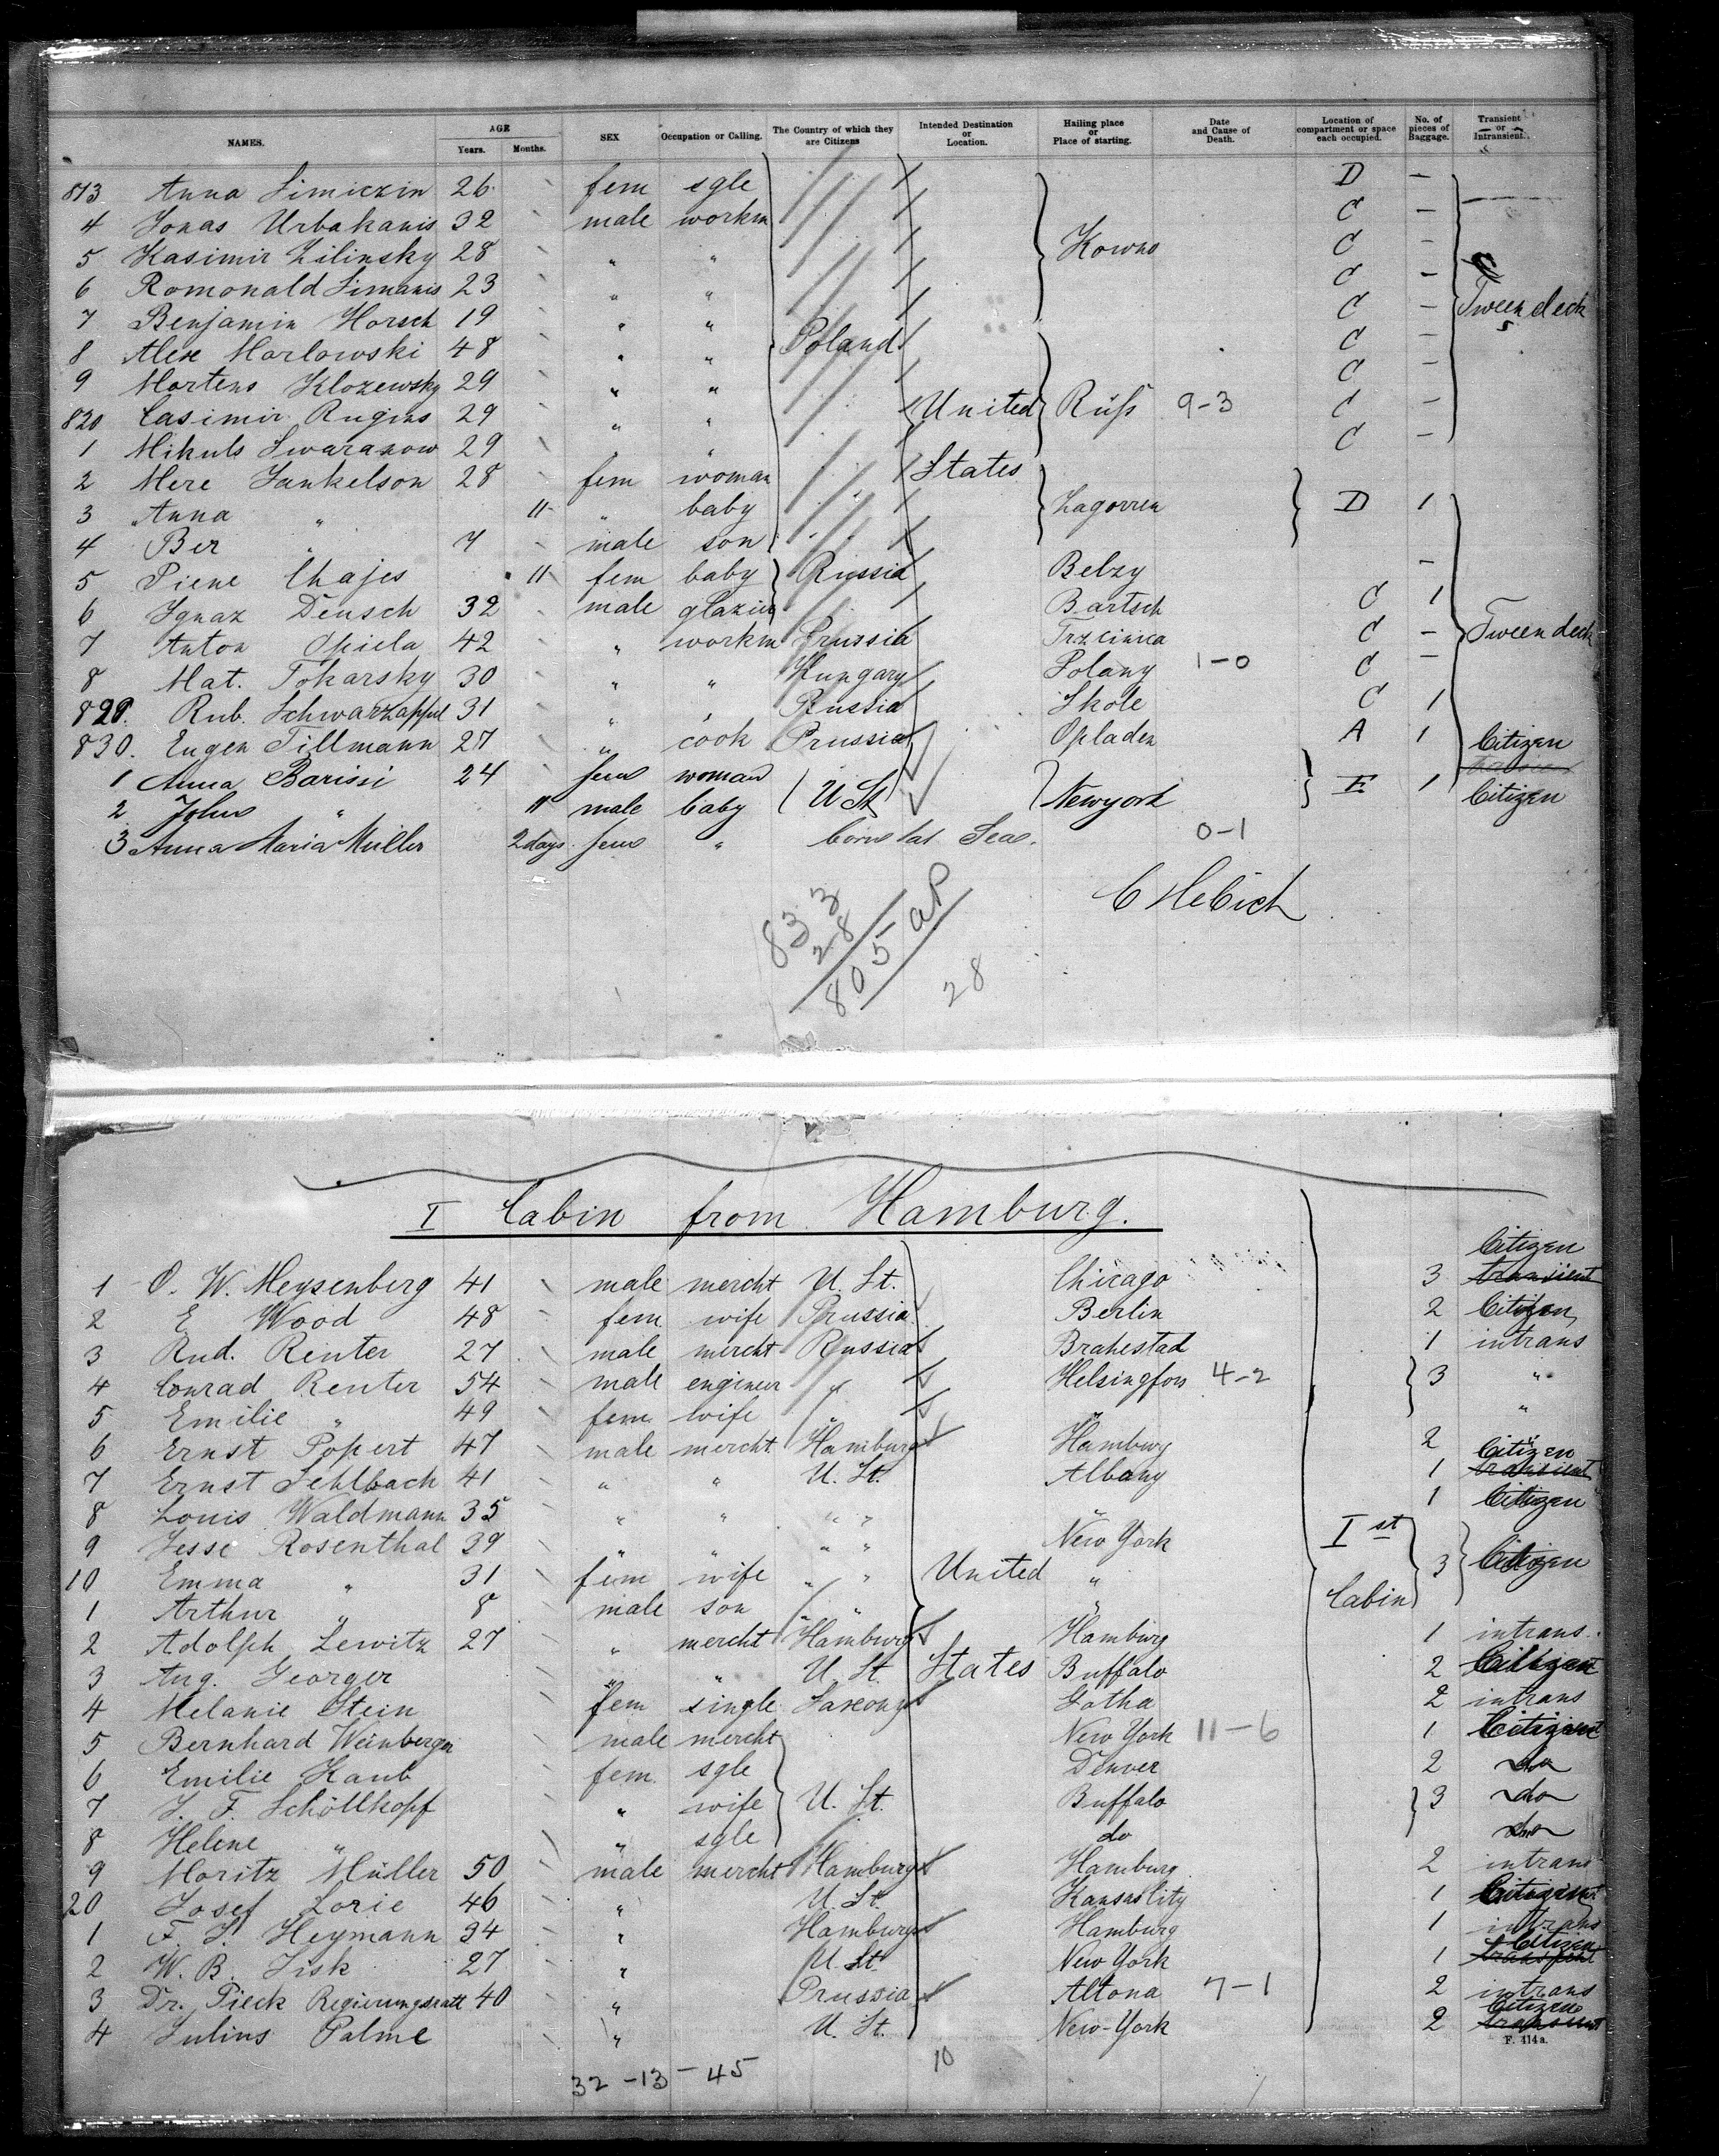 NAMES. AGE Years. Months. SEX Occupation or Calling. The Country of which they are Citizens Intended Destination or Location. Hailing place or Place of starting. Date and Cause of Death. Location of compartment or space each occupied. No. of pieces of Baggage. Transient or Intransient.
813 Anna Simiczin 26 fem sgle D –
4 Jonas Urbakanis 32 male workm C –
5 Kasimir Zilinsky 28 " " Kowno C –
6 Romonald Simanis 23 " " C –
7 Benjamin Horsch 19 " " C – Tween deck
8 Alex Marlowski 48 " " Poland C –
9 Martens Klozewsky 29 " " C –
820 Casimir Rugins 29 " " United Russ 9-3 C –
1 Mikuls Swarazow 29 " " C –
2 Mere Jankelson 28 fem woman States
3 Anna " 11 " baby Zagorren D 1
4 Ber " 7 male son
5 Piene Chajes 11 fem baby Russia Belzy –
6 Ignaz Deusch 32 male glazier Bartsch C 1
7 Anton Opiela 42 " workm Prussia Trzcinica C – Tween deck
8 Mat. Tokarsky 30 " " Hungary Polany 1-0 C –
829. Rub. Schwarzapfel 31 " " Russia Skole C 1
830. Eugen Tillmann 27 " cook Prussia Opladen A 1 Citizen
1 Anna Barissi 24 fem woman
2 John " 11 male baby U St Newyork E 1 Citizen
3 Anna Maria Müller 2 days fem " born at Sea. 0-1
C Hebich
833
28
805 aP
28
I Cabin from Hamburg.
Citizen
1 O. W. Meysenberg 41 male mercht U. St. Chicago 3 transient
2 E Wood 48 fem wife Prussia Berlin 2 Citizen
3 Rud. Renter 27 male mercht Russia Brahestad 1 intrans
4 Conrad Renter 54 male engineer " Helsingfors 4-2 3 "
5 Emilie " 49 fem wife " " "
6 Ernst Popert 47 male mercht Hamburg Hamburg 2 "
Citizen
7 Ernst Sehlbach 41 " " U. St. Albany 1 transient
8 Louis Waldmann 35 " " " " " 1 Citizen
9 Jesse Rosenthal 39 " " " " New York Ist
10 Emma " 31 fem wife " " United " 3 Citizen
1 Arthur " 8 male son " " " Cabin
2 Adolph Lewitz 27 " mercht Hamburg Hamburg 1 intrans.
3 Aug. Georger " " U. St. States Buffalo 2 Citizen
4 Melanie Stein fem single Saxony Gotha 2 intrans
5 Bernhard Weinberger male mercht New York 11-6 1 Citizen
6 Emilie Kaub fem. sgle Denver 2 do
7 J. F. Schöllkopf " wife U. St. Buffalo 3 do
8 Helene " " sgle do do
9 Moritz Müller 50 male mercht Hamburg Hamburg 2 intrans
20 Josef Lorie 46 " U. St. Kansas City 1 Citizen
1 F. J. Heymann 34 " Hamburg Hamburg 1 intrans
Citizen
2 W. B. Fisk 27 " U. St. New York 1 transient
3 Dr. Pieck Regierungsratt 40 " Prussia Altona 7-1 2 intrans
Citizen
4 Julius Palme " U. St. New-York 2 transient
F. 414a.
32 - 13 - 45 10